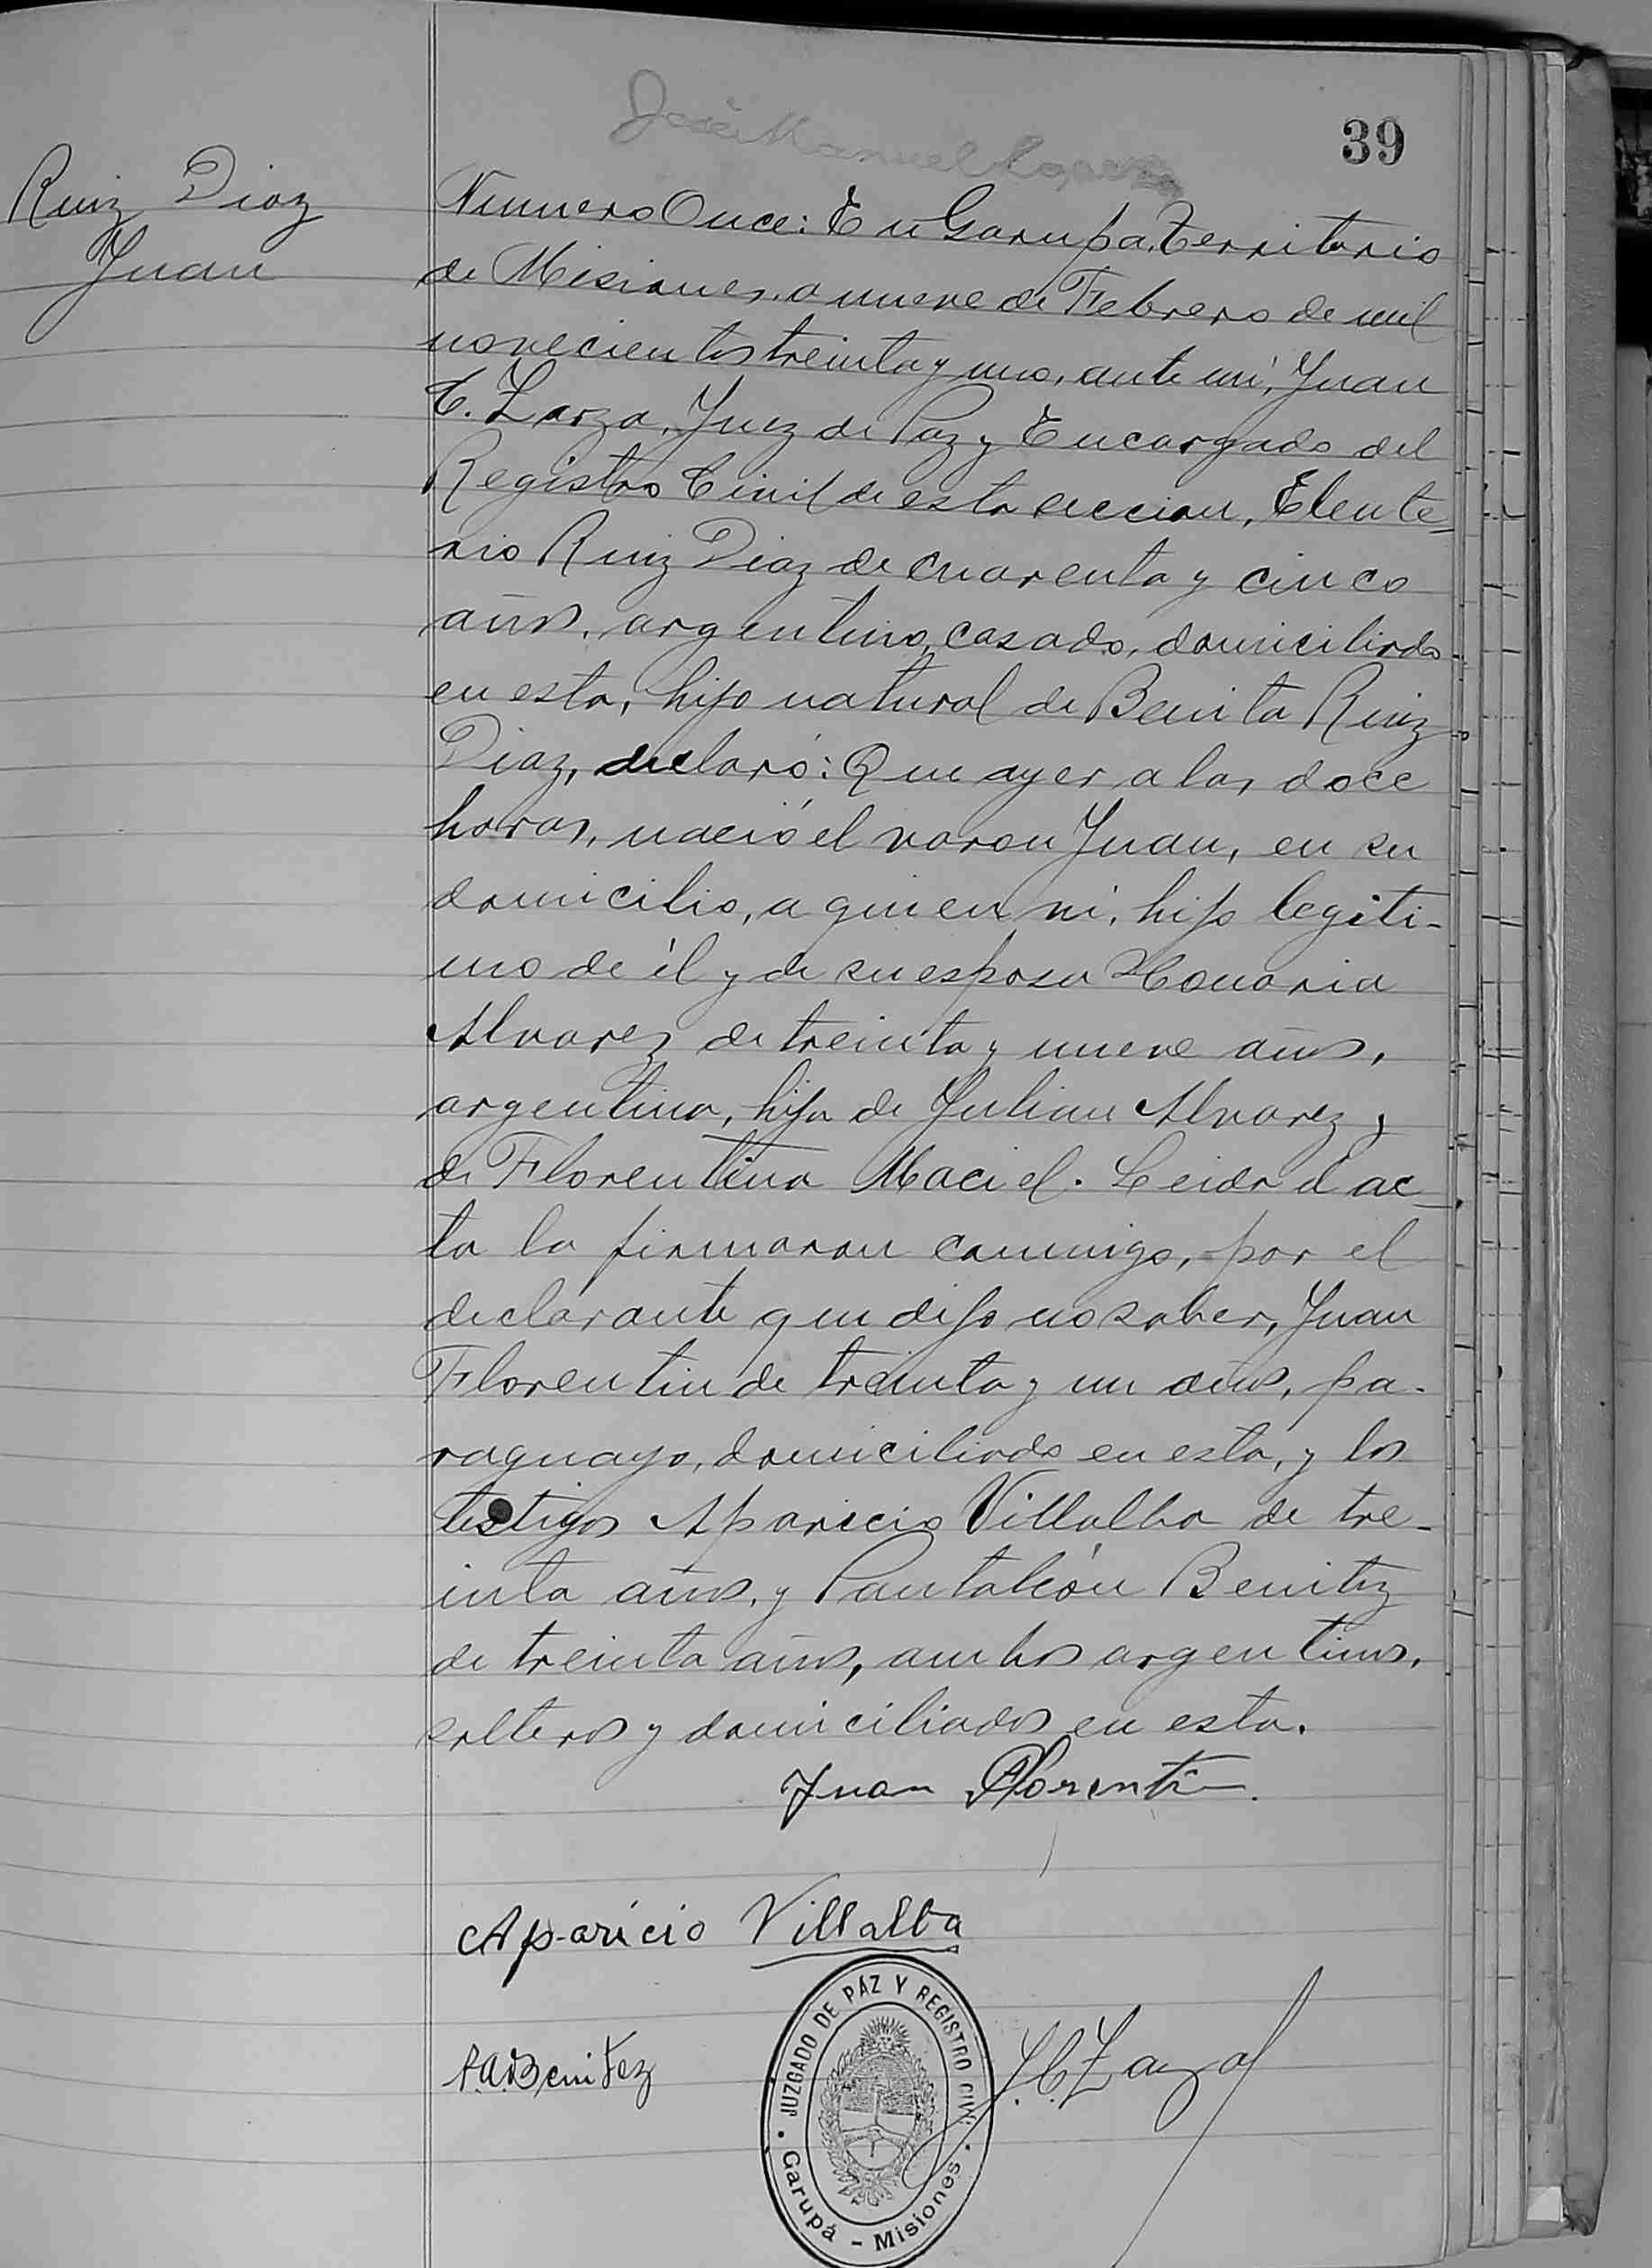 39
José Manuel
Ruiz Diaz
Juan
Numero Once: En Garupa, Territorio
de Misiones, a nueve de Febrero de mil
novecientos treinta y uno, ante mi, Juan
C. Zarza, Juez de Paz y Encargado del
Registro Civil de esta seccion, Eleute-
rio Ruiz Diaz de cuarenta y cinco
años, argentino, casado, domiciliado
en esta, hijo natural de Benita Ruiz
Diaz, declaró: Que ayer a las doce
horas, nació el varon Juan, en su
domicilio, a quien ví, hijo legiti-
mo de él y de su esposa Honoria
Alvarez de treinta y nueve años,
argentina, hija de Julian Alvarez y
de Florentina Maciel. Leida el ac-
ta la firmaron conmigo, por el
declarante que dijo no saber, Juan
Florentin de treinta y un años, pa-
raguayo, domiciliado en esta, y los
testigos Aparicio Villalba de tre-
inta años, y Pantaleón Benitez
de treinta años, ambos argentinos,
solteros y domiciliados en esta.
Juan Florentin.
Aparicio Villalba
P.A. Benitez
J.C. Zarza
JUZGADO DE PAZ Y REGISTRO CIVIL
Garupá - Misiones